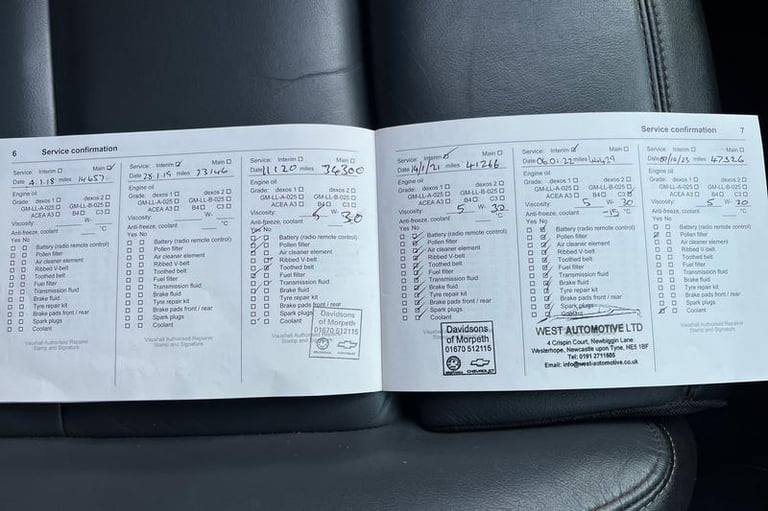 6 Service confirmation
Service: Interim ☐ Main ☑
Date 4.1.18 miles 14657
Engine oil
Grade: dexos 1 ☐ dexos 2 ☐
GM-LL-A-025 ☐ GM-LL-B-025 ☐
ACEA A3 ☐ B4 ☐ C3 ☐
Viscosity: W-
Anti-freeze, coolant °C
Yes No
☐ ☐ Battery (radio remote control)
☐ ☐ Pollen filter
☐ ☐ Air cleaner element
☐ ☐ Ribbed V-belt
☐ ☐ Toothed belt
☐ ☐ Fuel filter
☐ ☐ Transmission fluid
☐ ☐ Brake fluid
☐ ☐ Tyre repair kit
☐ ☐ Brake pads front / rear
☐ ☐ Spark plugs
☐ ☐ Coolant
Vauxhall Authorised Repairer
Stamp and Signature
Service: Interim ☑ Main ☐
Date 28.1.19 miles 23146
Engine oil
Grade: dexos 1 ☐ dexos 2 ☐
GM-LL-A-025 ☐ GM-LL-B-025 ☐
ACEA A3 ☐ B4 ☐ C3 ☐
Viscosity: W-
Anti-freeze, coolant °C
Yes No
☐ ☐ Battery (radio remote control)
☐ ☐ Pollen filter
☐ ☐ Air cleaner element
☐ ☐ Ribbed V-belt
☐ ☐ Toothed belt
☐ ☐ Fuel filter
☐ ☐ Transmission fluid
☐ ☐ Brake fluid
☐ ☐ Tyre repair kit
☐ ☐ Brake pads front / rear
☐ ☐ Spark plugs
☐ ☐ Coolant
Vauxhall Authorised Repairer
Stamp and Signature
Service: Interim ☐ Main ☐
Date 1 1 20 miles 34300
Engine oil
Grade: dexos 1 ☐ dexos 2 ☐
GM-LL-A-025 ☐ GM-LL-B-025 ☐
ACEA A3 ☐ B4 ☐ C3 ☐
Viscosity: 5 W- 30
Anti-freeze, coolant °C
Yes No
Battery (radio remote control)
Pollen filter
Air cleaner element
Ribbed V-belt
Toothed belt
Fuel filter
Transmission fluid
Brake fluid
Tyre repair kit
Brake pads front / rear
Spark plugs
Coolant
Vauxhall Authorised
Stamp and
Davidsons
of Morpeth
01670 512115
Service confirmation 7
Service: Interim ☑ Main ☐
Date 14/1/21 miles 41266
Engine oil
Grade: dexos 1 ☐ dexos 2 ☐
GM-LL-A-025 ☐ GM-LL-B-025 ☐
ACEA A3 ☐ B4 ☐ C3 ☐
Viscosity: 5 W- 30
Anti-freeze, coolant °C
Yes No
Battery (radio remote control)
Pollen filter
Air cleaner element
Ribbed V-belt
Toothed belt
Fuel filter
Transmission fluid
Brake fluid
Tyre repair kit
Brake pads front / rear
Spark plugs
Coolant
Davidsons
of Morpeth
01670 512115
CHEVROLET
Service: Interim ☑ Main ☐
Date 06.01.22 miles
Engine oil
Grade: dexos 1 ☐ dexos 2 ☐
GM-LL-A-025 ☐ GM-LL-B-025 ☐
ACEA A3 ☐ B4 ☐ C3 ☑
Viscosity: 5 W- 30
Anti-freeze, coolant -15 °C
Yes No
Battery (radio remote control)
Pollen filter
Air cleaner element
Ribbed V-belt
Toothed belt
Fuel filter
Transmission fluid
Brake fluid
Tyre repair kit
Brake pads front / rear
Spark plugs
Coolant
WEST AUTOMOTIVE LTD
4 Crispin Court, Newbiggin Lane
Westerhope, Newcastle upon Tyne, NE5 1BF
Tel: 0191 2711605
Email: info@west-automotive.co.uk
Service: Interim ☐ Main ☐
Date /10/23 miles 47326
Engine oil
Grade: dexos 1 ☐ dexos 2 ☐
GM-LL-A-025 ☐ GM-LL-B-025 ☐
ACEA A3 ☐ B4 ☐ C3 ☐
Viscosity: 5 W- 30
Anti-freeze, coolant °C
Yes No
Battery (radio remote control)
Pollen filter
Air cleaner element
Ribbed V-belt
Toothed belt
Fuel filter
Transmission fluid
Brake fluid
Tyre repair kit
Brake pads front / rear
Spark plugs
Coolant
Vauxhall Authorised Repairer
Stamp and Signature